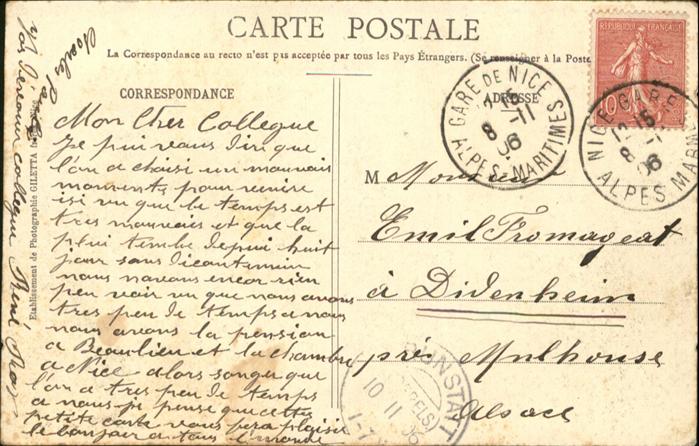 CARTE POSTALE
La Correspondance au recto n'est pas acceptée par tous les Pays Étrangers. (Se renseigner à la Poste
CORRESPONDANCE
Mon Cher Collegue
Je puis vous dir que
l'on a choisi un mauvais
moments pour venire
isi vu que le temps est
tres mauvais et que la
plui tombe depui huit
jour sans
nous navons encor rien
peu voir vu que nous avons
tres peu de temps a nous
nous avons la pension
a Beaulieu et la chambre
a Nice alors songer que
l'on a tres peu de temps
a nous je pense que cette
petite carte vous fera plaisir
le bonjour a tous le monde
votre collegue René
Etablissement de Photographie GILETTA
ADRESSE
M Monsieur
Emil Fromageat
à Didenheim
près Mulhouse
Alsace
REPUBLIQUE FRANÇAISE
10
GARE DE NICE
8 -11
06
ALPES MARITIMES
NICE GARE
15
8
06
ALPES MARMES
BRUNSTATT
10 11 06